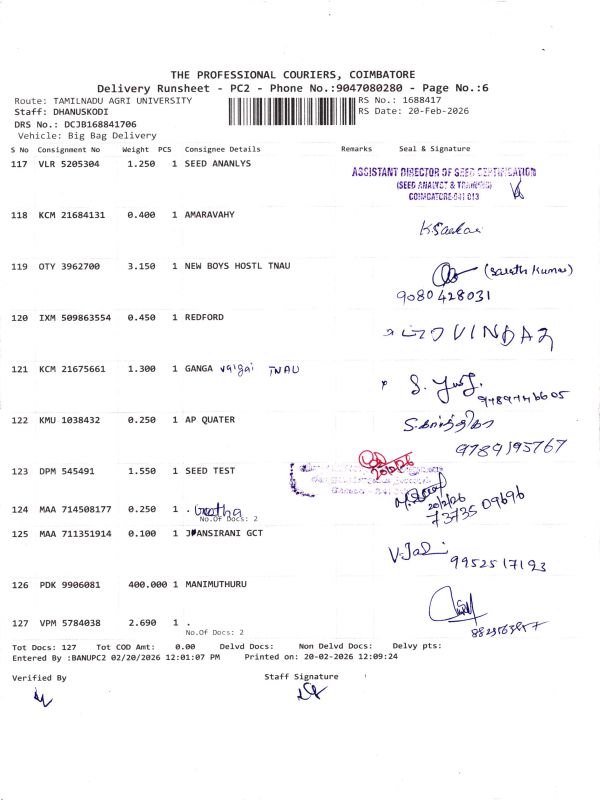 THE PROFESSIONAL COURIERS, COIMBATORE
Delivery Runsheet - PC2 - Phone No.:9047080280 - Page No.:6
Route: TAMILNADU AGRI UNIVERSITY RS No.: 1688417
Staff: DHANUSKODI RS Date: 20-Feb-2026
DRS No.: DCJB168841706
Vehicle: Big Bag Delivery
S No Consignment No Weight PCS Consignee Details Remarks Seal & Signature
117 VLR 5205304 1.250 1 SEED ANANLYS
ASSISTANT DIRECTOR OF SEED CERTIFICATION
(SEED ANALYST & TRAINING)
COIMBATORE-641 013
118 KCM 21684131 0.400 1 AMARAVAHY
119 OTY 3962700 3.150 1 NEW BOYS HOSTL TNAU
(Sarath Kumar)
9080428031
120 IXM 509863554 0.450 1 REDFORD
121 KCM 21675661 1.300 1 GANGA vaigai TNAU
122 KMU 1038432 0.250 1 AP QUATER
9789195767
123 DPM 545491 1.550 1 SEED TEST
20/2/26
20/2/26
124 MAA 714508177 0.250 1 . Geetha
73735 09696
No.Of Docs: 2
125 MAA 711351914 0.100 1 JANSIRANI GCT
9952517193
126 PDK 9906081 400.000 1 MANIMUTHURU
127 VPM 5784038 2.690 1 .
No.Of Docs: 2
Tot Docs: 127 Tot COD Amt: 0.00 Delvd Docs: Non Delvd Docs: Delvy pts:
Entered By :BANUPC2 02/20/2026 12:01:07 PM Printed on: 20-02-2026 12:09:24
Verified By Staff Signature